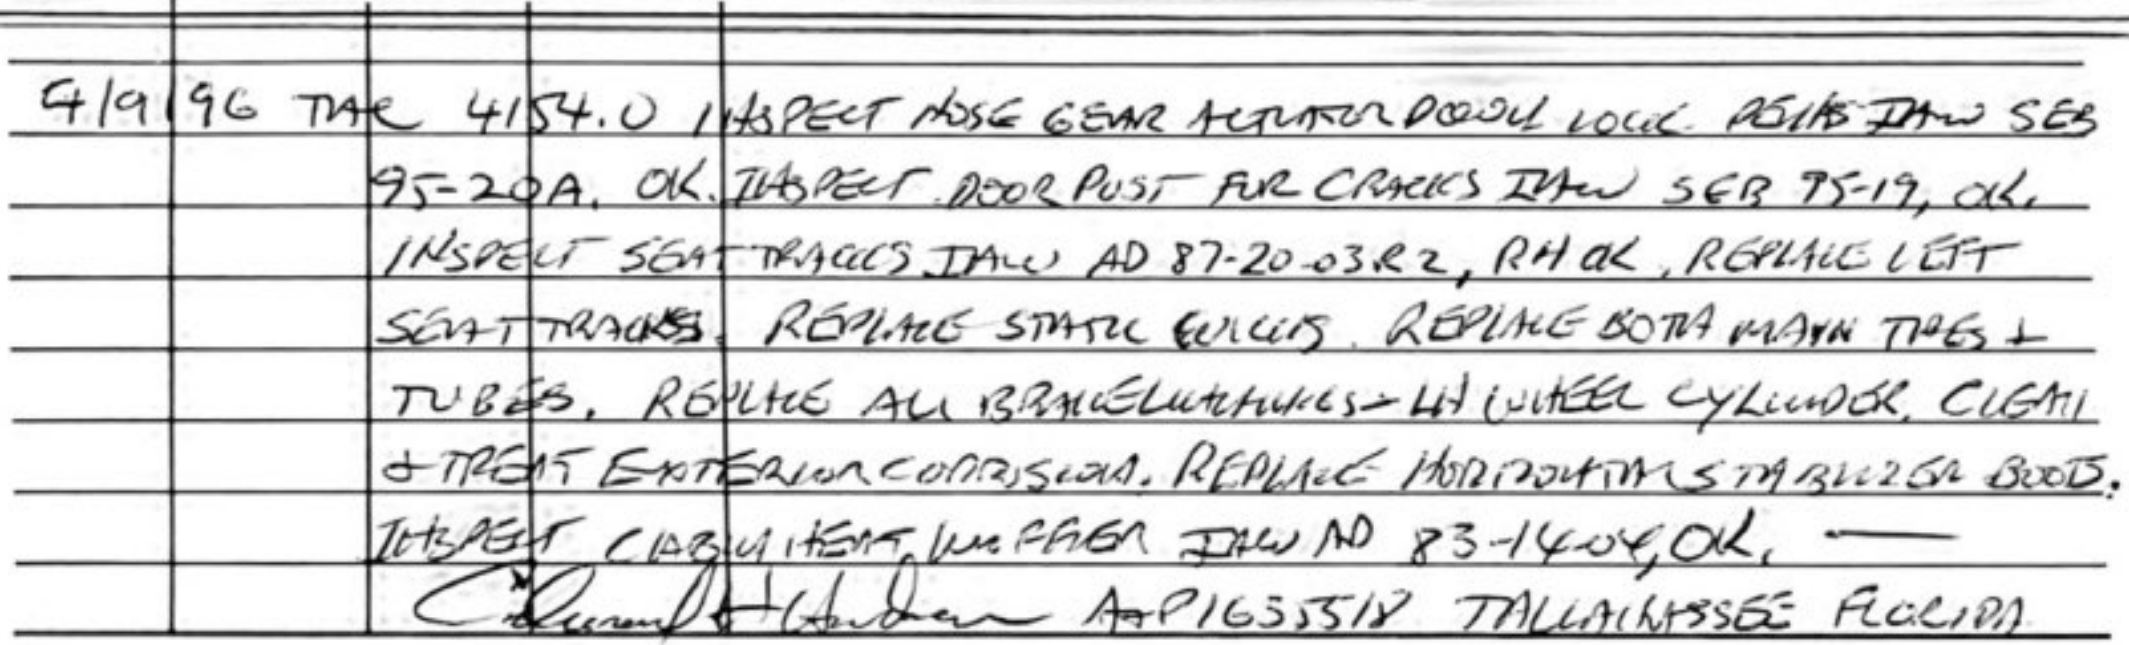 4/9/96 TIAR 4154.0 INSPECT NOSE GEAR ACTUATOR DOWN LOCK PINS IAW SEB
95-20A, OK. INSPECT DOOR POST FOR CRACKS IAW SEB 95-19, OK.
INSPECT SEAT TRACKS IAW AD 87-20-03R2, RH OK, REPLACE LEFT
SEAT TRACKS. REPLACE STATIC WICKS. REPLACE BOTH MAIN TIRES &
TUBES. REPLACE ALL BRAKE LININGS & LH WHEEL CYLINDER. CLEAN
& TREAT EXTERIOR CORROSION. REPLACE HORIZONTAL STABILIZER BOOTS.
INSPECT CABIN HEAT MUFFLER IAW AD 83-14-04, OK. —
A&P 1635518 TALLAHASSEE FLORIDA